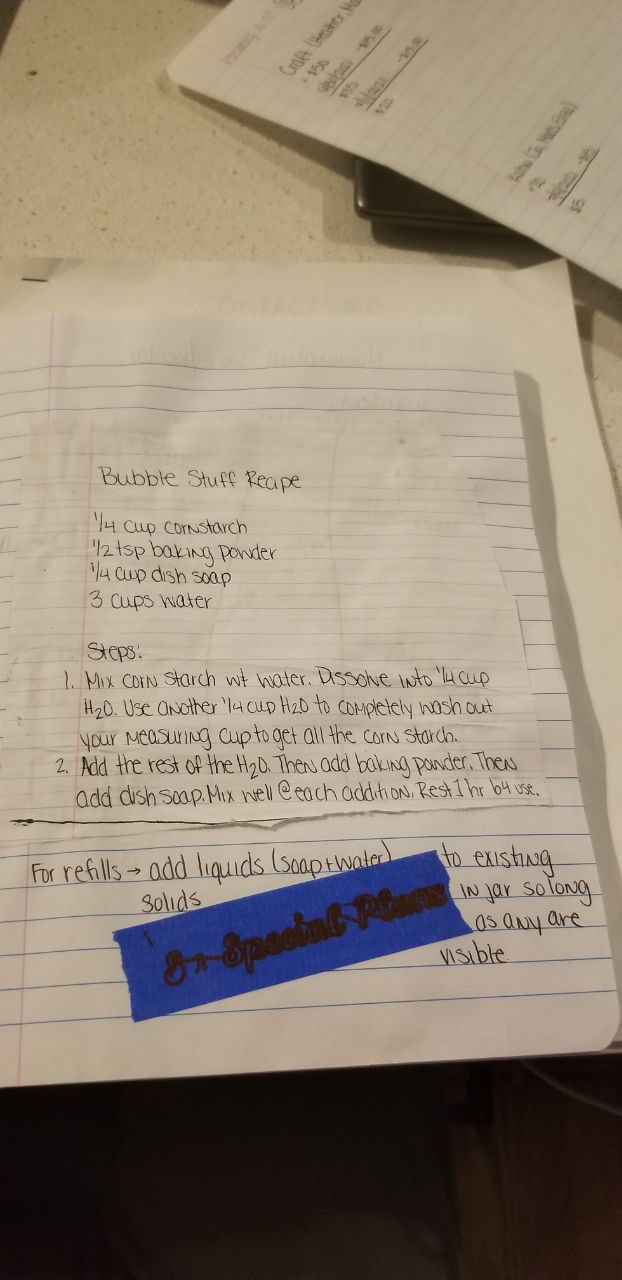 Craft (Heather, Ma
+ $50
-$15.00
$35
-$15.00
$20
20
$5
Bubble Stuff Recipe
1/4 cup cornstarch
1/2 tsp baking powder
1/4 cup dish soap
3 cups water
Steps:
1. Mix corn starch wt water. Dissolve into 1/4 cup
H2O. Use another 1/4 cup H2O to completely wash out
your measuring cup to get all the corn starch.
2. Add the rest of the H2O. Then add baking powder. Then
add dish soap. Mix well @ each addition. Rest 1 hr b4 use.
For refills → add liquids (soap + water) to existing
solids in jar so long
as any are
visible.
Special